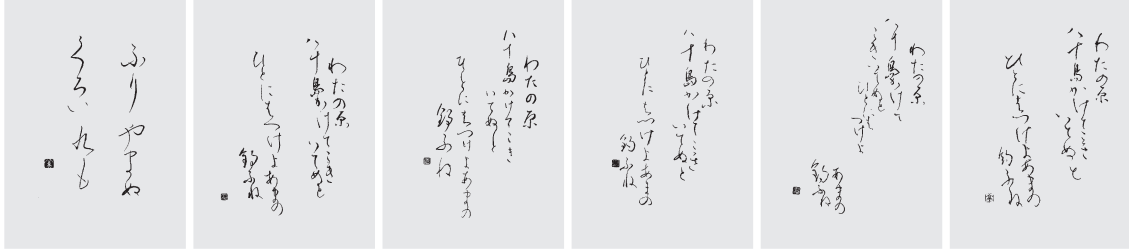 ふりやまぬ
わたの原
八十島かけてこき
いてぬと
ひとにはつけよあまの
釣ふね
わたの原
八十島かけてこき
いてぬと
ひとにはつけよあまの
釣ふね
わたの原
八十島かけてこき
いてぬと
ひとにはつけよあまの
釣ふね
わたの原
八十島かけて
こきいてぬと
ひとには
つけよ
あまの
釣ふね
わたの原
八十島かけてこき
いてぬと
ひとにはつけよあまの
釣ふね